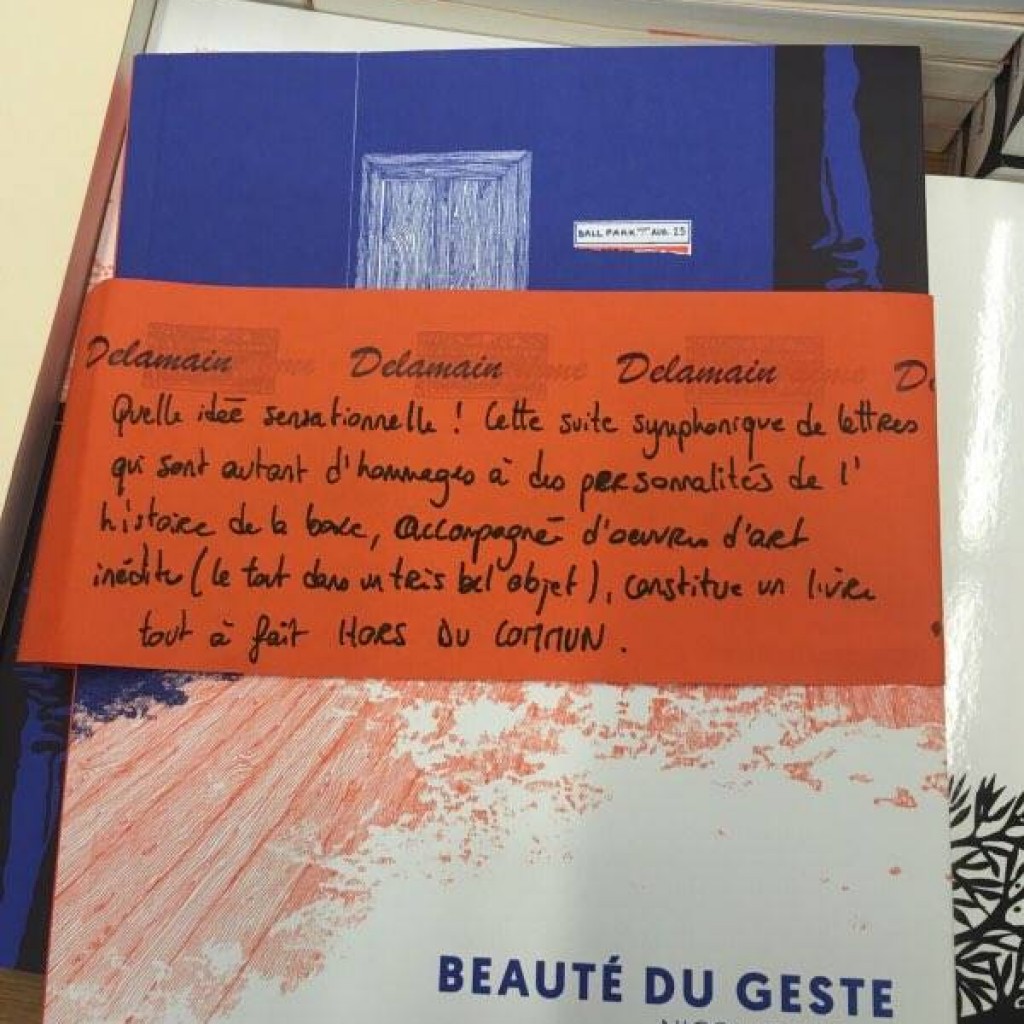 BALL PARK AVE. 23
Delamain Delamain Delamain D
Quelle idée sensationnelle ! Cette suite symphonique de lettres
qui sont autant d'hommages à des personnalités de l'
histoire de la boxe, accompagné d'oeuvres d'art
inédites (le tout dans un très bel objet), constitue un livre
tout à fait HORS DU COMMUN.
BEAUTÉ DU GESTE